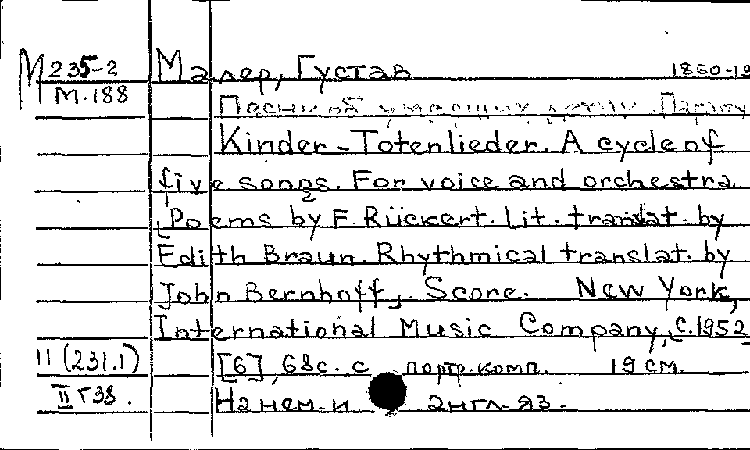 М 235-2 Малер, Густав 1860-19
М.188
Песни об умерших детях. Партиту
Kinder-Totenlieder. A cycle of
five songs. For voice and orchestra
[Poems by F. Rückert. Lit. translat. by
Edith Braun. Rhythmical translat. by
John Bernhoff]. Score. New York,
International Music Company, [c.1952
II (231.1) [6], 68 с. с портр. комп. 19 см.
II г 38. На нем. и англ. яз.